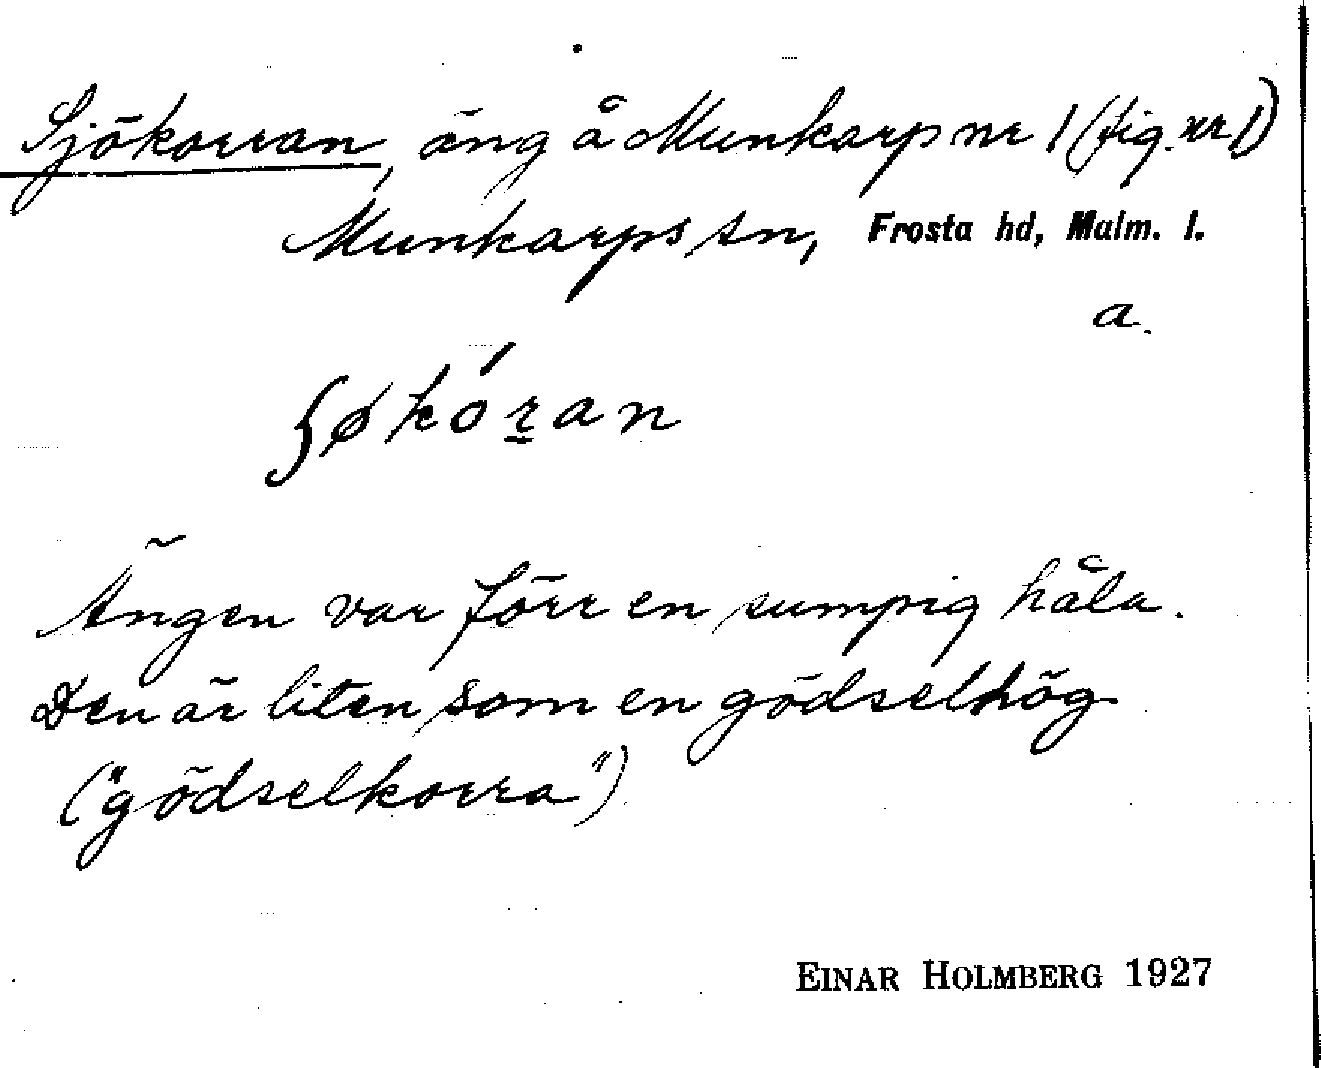 Sjökorran, äng å Munkarp nr 1 (fig. nr 1)
Munkarps sn, Frosta hd, Malm. l.
a.
ʃøkóran
Ängen var förr en sumpig håla.
Den är liten som en gödselhög
("gödselkorra")
EINAR HOLMBERG 1927